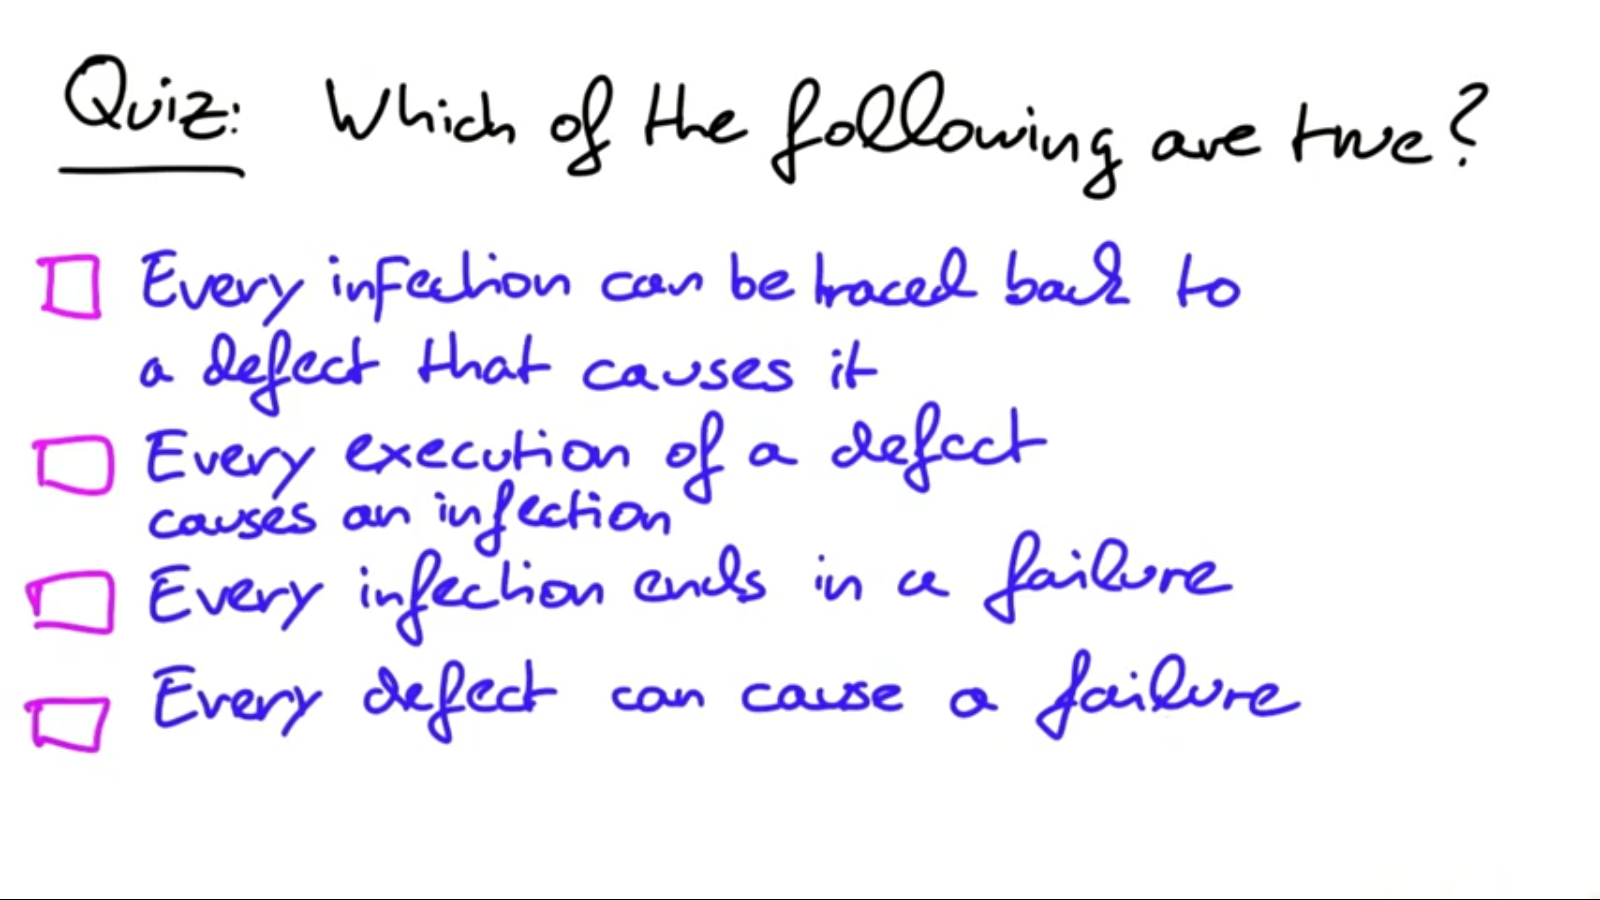 Quiz: Which of the following are true?
Every infection can be traced back to
a defect that causes it
Every execution of a defect
causes an infection
Every infection ends in a failure
Every defect can cause a failure